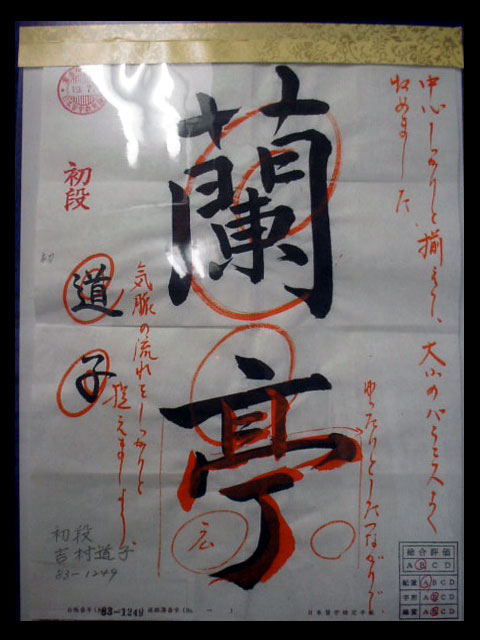 蘭亭
道子
初段
中心しっかりと揃えて、大小のバランスよく
収めました
ゆったりとしたつながりで
気脈の流れをしっかりと
捉えましょう
広
初段
吉村道子
83-1249
83-1249
日本習字検定手帳
総合評価
A B C D
配置 A B C D
字形 A B C D
線質 A B C D